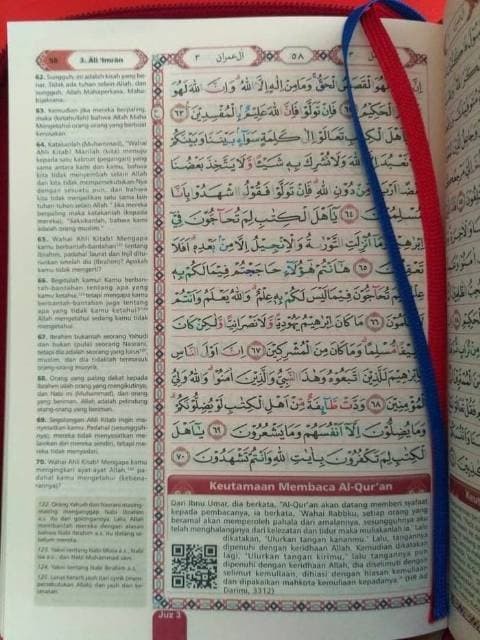 58
3. Āli 'Imrān
62. Sungguh, ini adalah kisah yang be-
nar. Tidak ada tuhan selain Allah, dan
sungguh, Allah Mahaperkasa, Maha-
bijaksana.
63. Kemudian jika mereka berpaling,
maka (ketahuilah) bahwa Allah Maha
Mengetahui orang-orang yang berbuat
kerusakan.
64. Katakanlah (Muhammad), "Wahai
Ahli Kitab! Marilah (kita) menuju
kepada satu kalimat (pegangan) yang
sama antara kami dan kamu, bahwa
kita tidak menyembah selain Allah
dan kita tidak mempersekutukan-Nya
dengan sesuatu pun, dan bahwa
kita tidak menjadikan satu sama lain
tuhan-tuhan selain Allah." Jika mereka
berpaling maka katakanlah (kepada
mereka), "Saksikanlah, bahwa kami
adalah orang muslim."
65. Wahai Ahli Kitab! Mengapa
kamu berbantah-bantahan tentang
Ibrahim, padahal Taurat dan Injil ditu-
runkan setelah dia (Ibrahim)? Apakah
kamu tidak mengerti?
66. Begitulah kamu! Kamu berban-
tah-bantahan tentang apa yang
kamu ketahui, tetapi mengapa kamu
berbantah-bantahan juga tentang
apa yang tidak kamu ketahui?
Allah mengetahui sedang kamu tidak
mengetahui.
67. Ibrahim bukanlah seorang Yahudi
dan bukan (pula) seorang Nasrani,
tetapi dia adalah seorang yang lurus,
muslim, dan dia tidaklah termasuk
orang-orang musyrik.
68. Orang yang paling dekat kepada
Ibrahim ialah orang yang mengikutinya,
dan Nabi ini (Muhammad), dan orang
yang beriman. Allah adalah pelindung
orang-orang yang beriman.
69. Segolongan Ahli Kitab ingin me-
nyesatkan kamu. Padahal (sesungguh-
nya), mereka tidak menyesatkan me-
lainkan diri mereka sendiri, tetapi mere-
ka tidak menyadari.
70. Wahai Ahli Kitab! Mengapa kamu
mengingkari ayat-ayat Allah, pa-
dahal kamu mengetahui (kebena-
rannya)?
ال عمران ٣
٥٨
٣
لَهُوَ الْقَصَصُ الْحَقُّ وَمَا مِنْ اِلٰهٍ اِلَّا اللّٰهُ وَاِنَّ اللّٰهَ لَهُوَ
الْحَكِيْمُ ٦٢ فَاِنْ تَوَلَّوْا فَاِنَّ اللّٰهَ عَلِيْمٌ بِالْمُفْسِدِيْنَ ٦٣
الْكِتٰبِ تَعَالَوْا اِلٰى كَلِمَةٍ سَوَاۤءٍ بَيْنَنَا وَبَيْنَكُمْ
نَعْبُدَ اِلَّا اللّٰهَ وَلَا نُشْرِكَ بِهٖ شَيْـًٔا وَّلَا يَتَّخِذَ بَعْضُنَا
اَرْبَابًا مِّنْ دُوْنِ اللّٰهِ فَاِنْ تَوَلَّوْا فَقُوْلُوا اشْهَدُوْا بِاَنَّا
مُسْلِمُوْنَ ٦٤ يٰٓاَهْلَ الْكِتٰبِ لِمَ تُحَاۤجُّوْنَ فِيْٓ
وَمَآ اُنْزِلَتِ التَّوْرٰىةُ وَالْاِنْجِيْلُ اِلَّا مِنْۢ بَعْدِهٖ اَفَلَا
تَعْقِلُوْنَ ٦٥ هٰٓاَنْتُمْ هٰٓؤُلَاۤءِ حَاجَجْتُمْ فِيْمَا لَكُمْ بِهٖ
عِلْمٌ فَلِمَ تُحَاۤجُّوْنَ فِيْمَا لَيْسَ لَكُمْ بِهٖ عِلْمٌ وَاللّٰهُ يَعْلَمُ وَاَنْتُمْ
لَا تَعْلَمُوْنَ ٦٦ مَاكَانَ اِبْرٰهِيْمُ يَهُوْدِيًّا وَّلَا نَصْرَانِيًّا وَّلٰكِنْ كَانَ
حَنِيْفًا مُّسْلِمًا وَمَا كَانَ مِنَ الْمُشْرِكِيْنَ ٦٧ اِنَّ اَوْلَى النَّاسِ
بِاِبْرٰهِيْمَ لَلَّذِيْنَ اتَّبَعُوْهُ وَهٰذَا النَّبِيُّ وَالَّذِيْنَ اٰمَنُوْا وَاللّٰهُ وَلِيُّ
الْمُؤْمِنِيْنَ ٦٨ وَدَّتْ طَّاۤىِٕفَةٌ مِّنْ اَهْلِ الْكِتٰبِ لَوْ يُضِلُّوْنَكُمْ
وَمَا يُضِلُّوْنَ اِلَّآ اَنْفُسَهُمْ وَمَا يَشْعُرُوْنَ ٦٩ يٰٓاَهْلَ
الْكِتٰبِ لِمَ تَكْفُرُوْنَ بِاٰيٰتِ اللّٰهِ وَاَنْتُمْ تَشْهَدُوْنَ ٧٠
Keutamaan Membaca Al-Qur'an
Dari Ibnu Umar, dia berkata, "Al-Qur'an akan datang memberi syafaat
kepada pembacanya, ia berkata, 'Wahai Rabbku, setiap orang yang
beramal akan memperoleh pahala dari amalannya, sesungguhnya aku
telah menghalanginya dari kelezatan dan tidur maka muliakanlah ia. Lalu
dikatakan, 'Ulurkan tangan kananmu.' Lalu, tangannya
dipenuhi dengan keridhaan Allah. Kemudian dikatakan
lagi, 'Ulurkan tangan kirimu,' lalu tangannya pun
dipenuhi dengan keridhaan Allah, dia diselimuti dengan
selimut kemuliaan, dihiasi dengan hiasan kemuliaan
dan dipakaikan mahkota kemuliaan kepadanya." (HR Ad
Darimi, 3312)
122. Orang Yahudi dan Nasrani masing-
123. Yakni tentang Nabi Musa a.s., Nabi
Isa a.s., dan Nabi Muhammad saw.
124. Yakni tentang Nabi Ibrahim a.s.
Juz 3